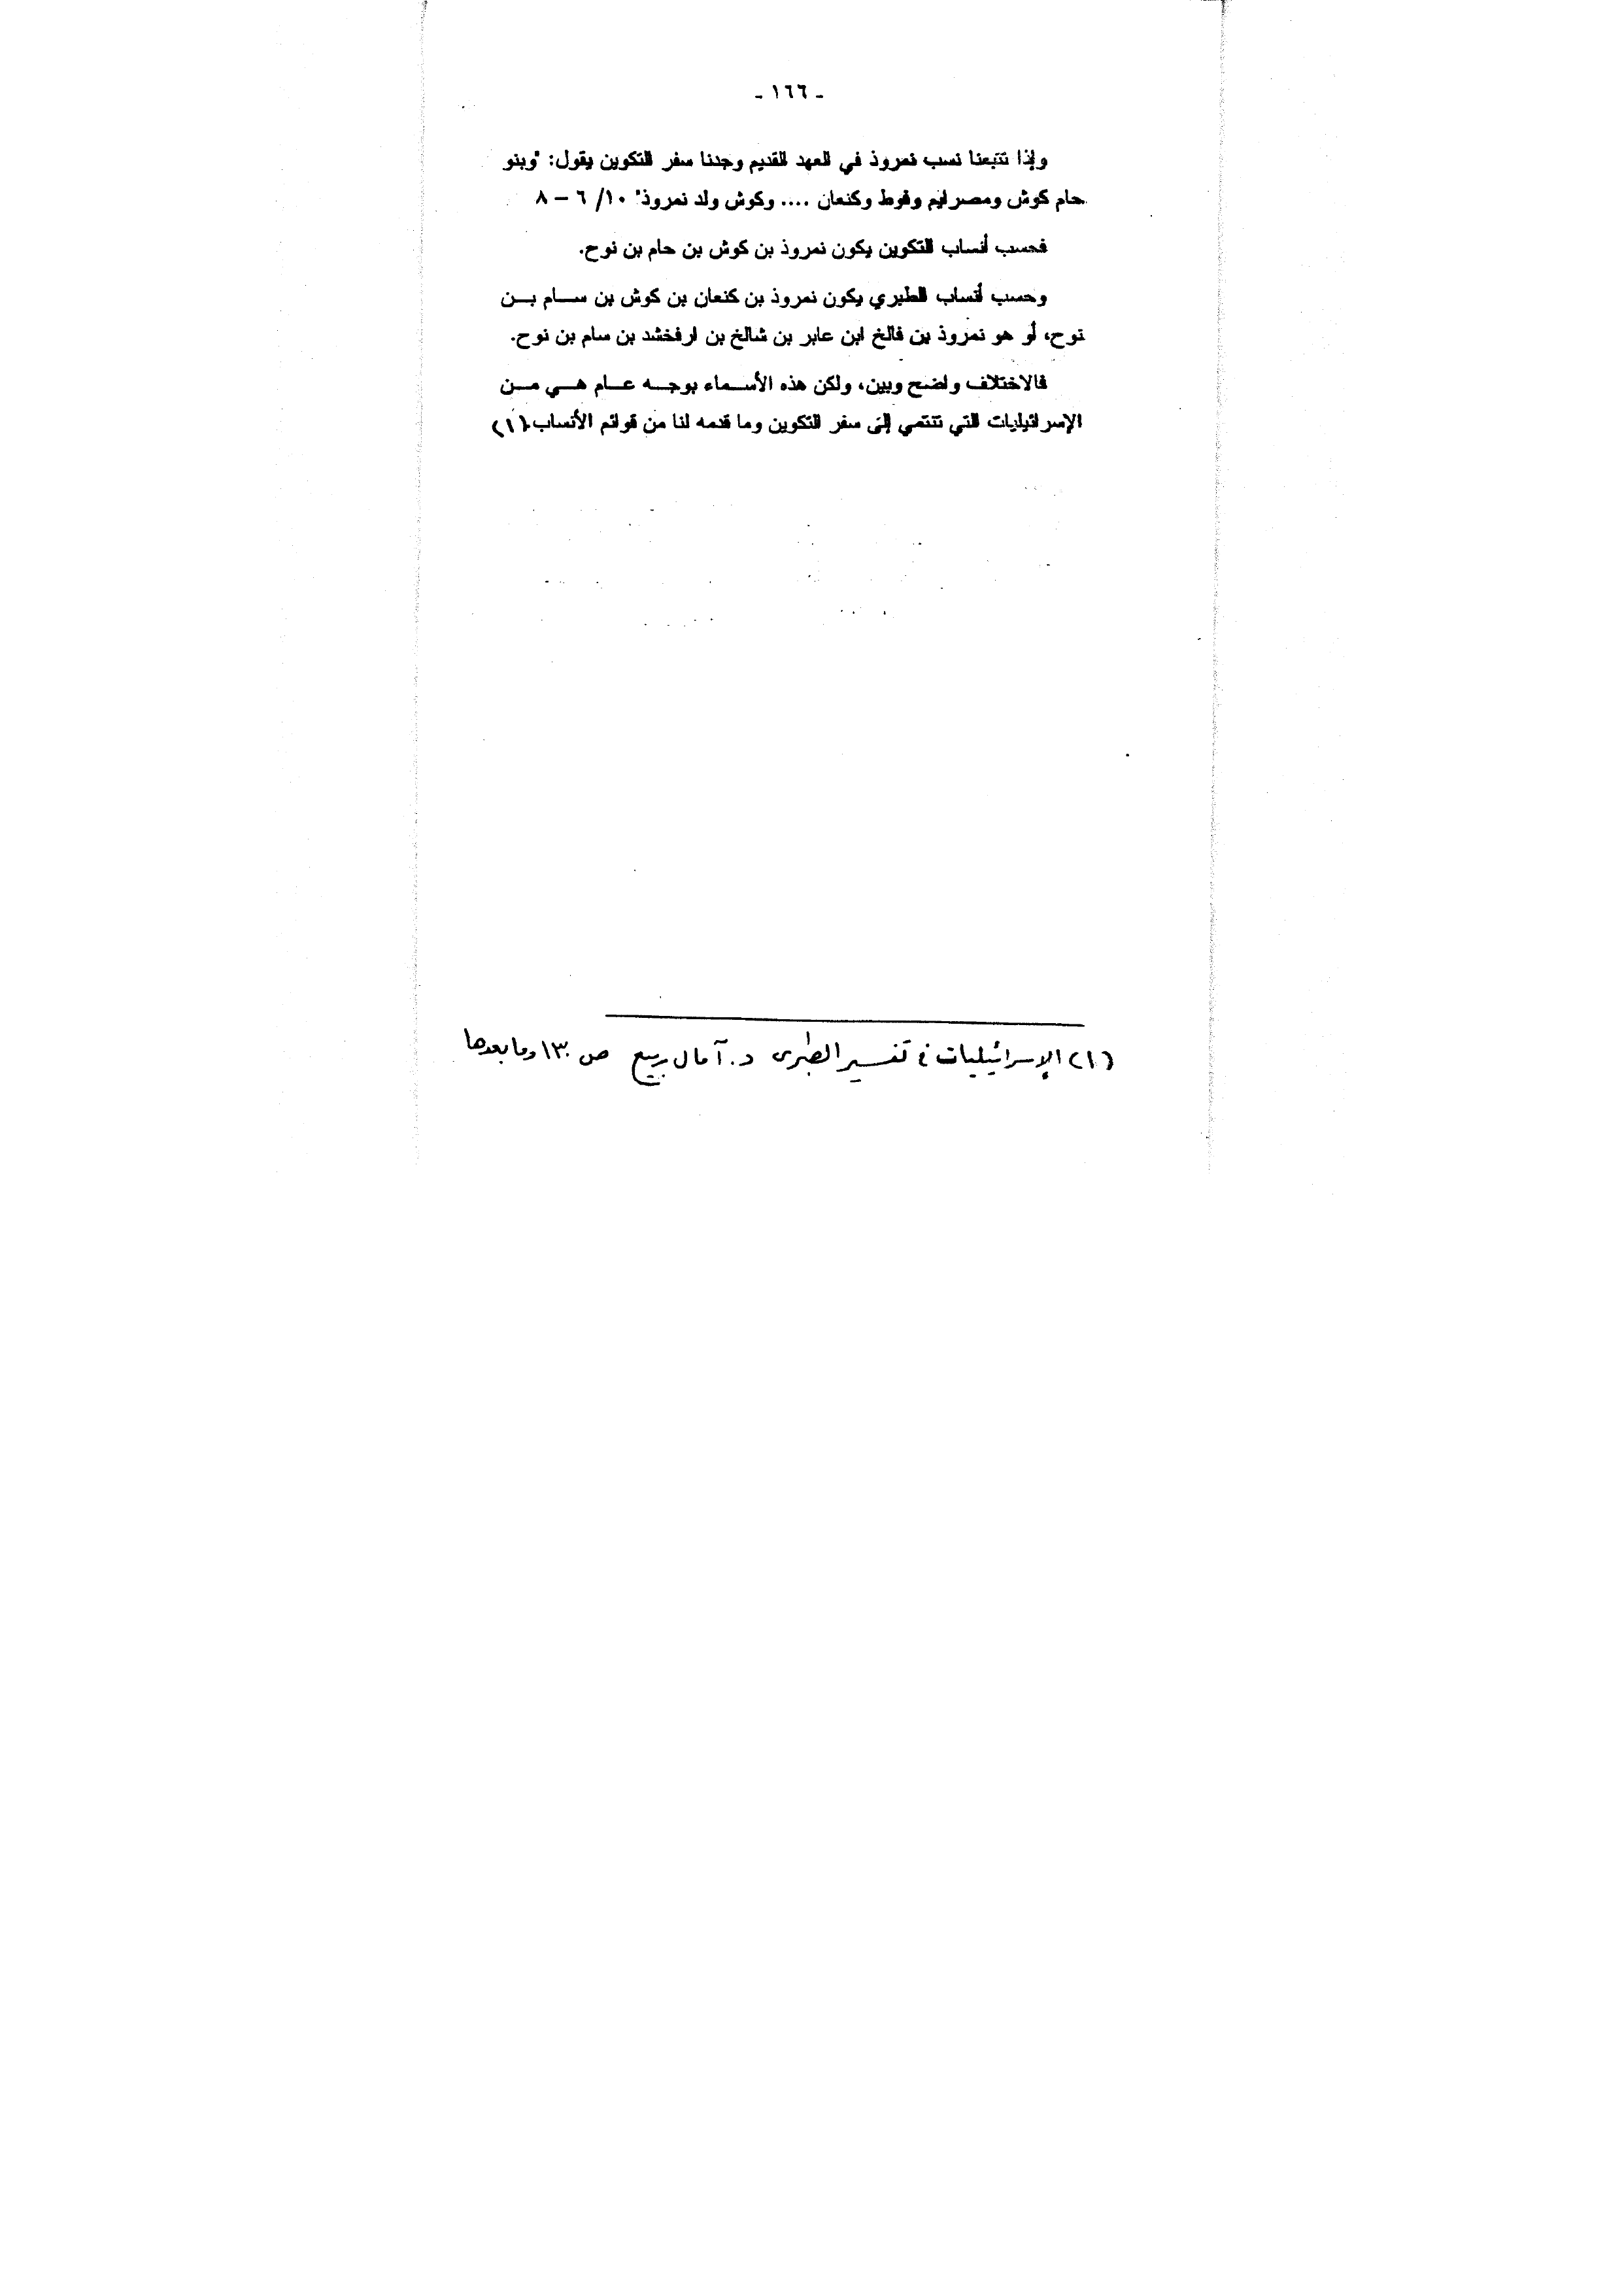 - ١٦٦ -
وإذا تتبعنا نسب نمروذ في العهد القديم وجدنا سفر التكوين يقول: "وبنو
حام كوش ومصرايم وفوط وكنعان .... وكوش ولد نمروذ" ١٠/ ٦ – ٨
فحسب أنساب التكوين يكون نمروذ بن كوش بن حام بن نوح.
وحسب أنساب الطبري يكون نمروذ بن كنعان بن كوش بن سام بن
نوح، أو هو نمروذ بن فالخ ابن عابر بن شالخ بن ارفخشد بن سام بن نوح.
فالاختلاف واضح وبين، ولكن هذه الأسماء بوجه عام هي من
الإسرائيليات التي تنتمي إلى سفر التكوين وما قدمه لنا من قوائم الأنساب.(١)
(١) الإسرائيليات في تفسير الطبرى د. آمال ربيع ص ١٣٠ وما بعدها